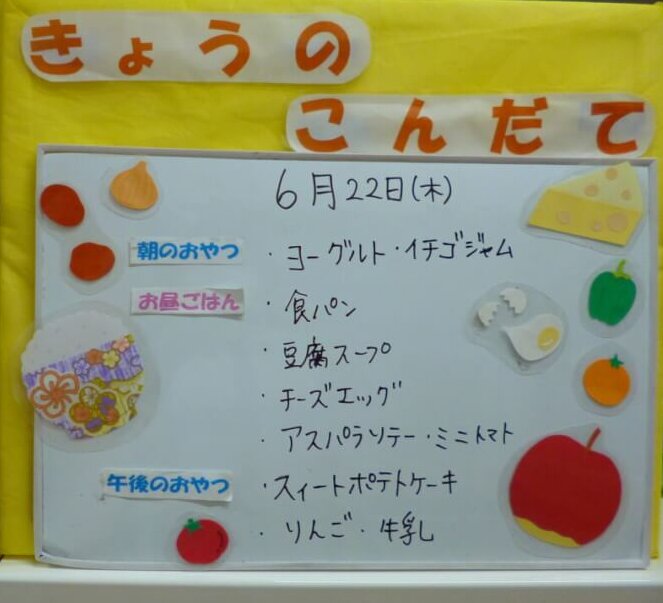 きょうの
こんだて
6月22日(木)
朝のおやつ ・ヨーグルト・イチゴジャム
お昼ごはん ・食パン
・豆腐スープ
・チーズエッグ
・アスパラソテー・ミニトマト
午後のおやつ ・スィートポテトケーキ
・りんご・牛乳